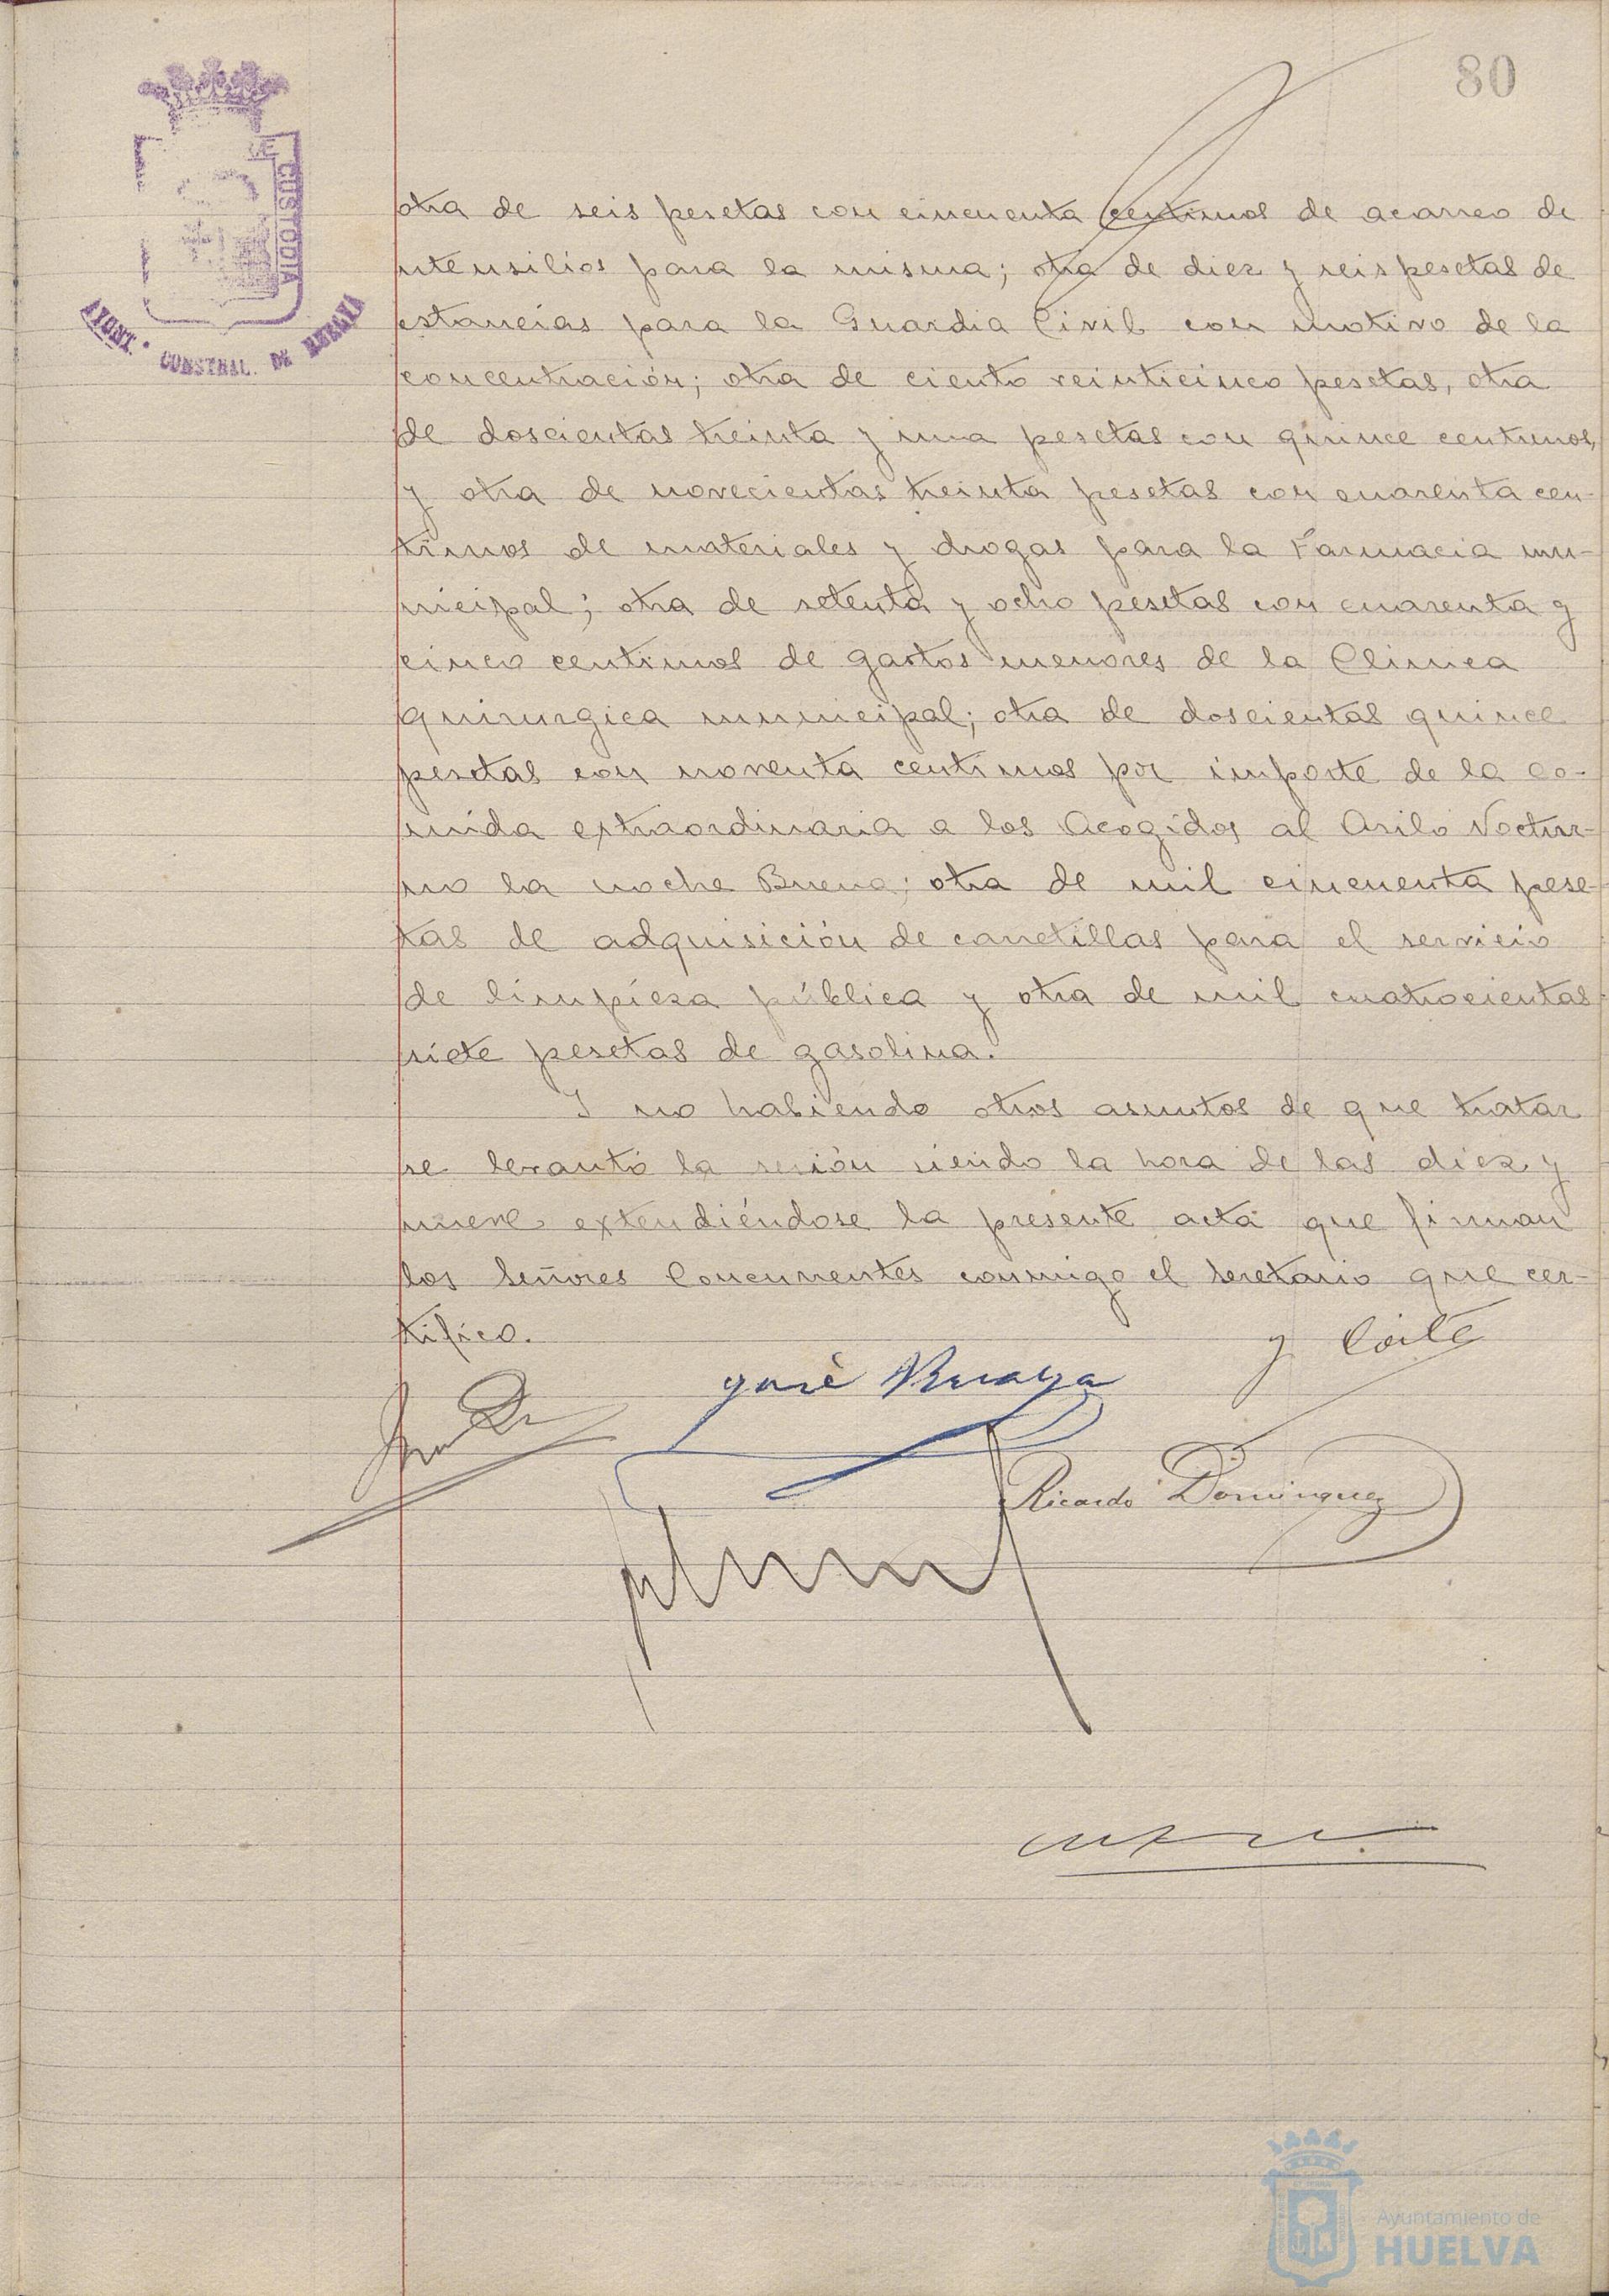 80
DE CUSTODIA
AYONT. CONSTNAL. DE HUELVA
otra de seis pesetas con cincuenta centimos de acarreo de
utensilios para la misma; otra de diez y seis pesetas de
estancias para la Guardia Civil con motivo de la
concentración; otra de ciento veinticinco pesetas, otra
de doscientas treinta y una pesetas con quince centimos,
y otra de novecientas treinta pesetas con cuarenta cen-
timos de materiales y drogas para la Farmacia mu-
nicipal; otra de setenta y ocho pesetas con cuarenta y
cinco centimos de gastos menores de la Clinica
quirurgica municipal; otra de doscientas quince
pesetas con noventa centimos por importe de la co-
mida extraordinaria a los Acogidos al Asilo Noctur-
no la noche Buena; otra de mil cincuenta pese-
tas de adquisición de carretillas para el servicio
de limpieza pública y otra de mil cuatrocientas
siete pesetas de gasolina.
Y no habiendo otros asuntos de que tratar
se levantó la sesión siendo la hora de las diez y
nueve extendiéndose la presente acta que firman
los Señores Concurrentes conmigo el Secretario que cer-
tifico.
José
Ricardo Dominguez
Ayuntamiento de
HUELVA